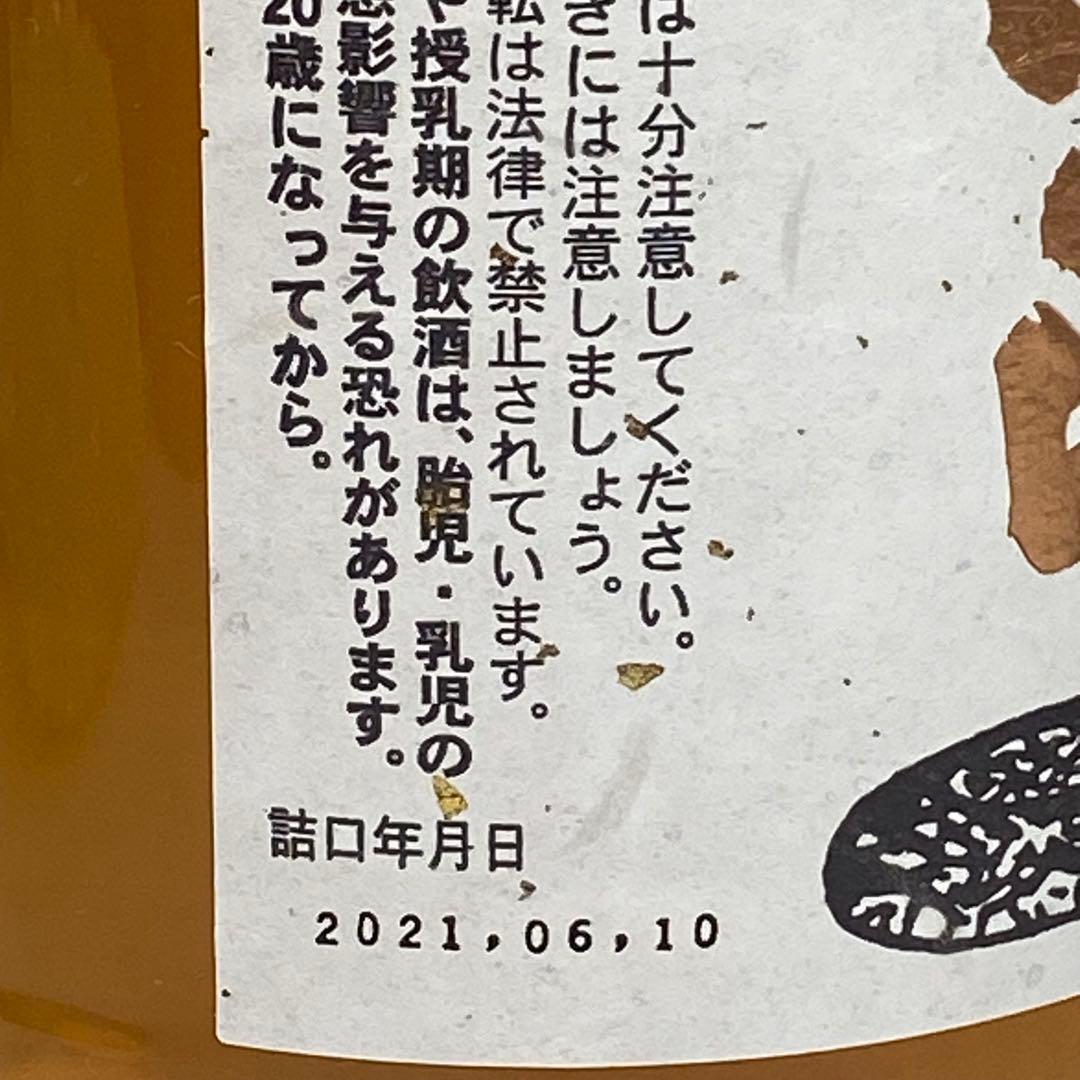 は十分注意してください。
ぎには注意しましょう。
転は法律で禁止されています。
や授乳期の飲酒は、胎児・乳児の
悪影響を与える恐れがあります。
20歳になってから。
詰口年月日
2021,06,10